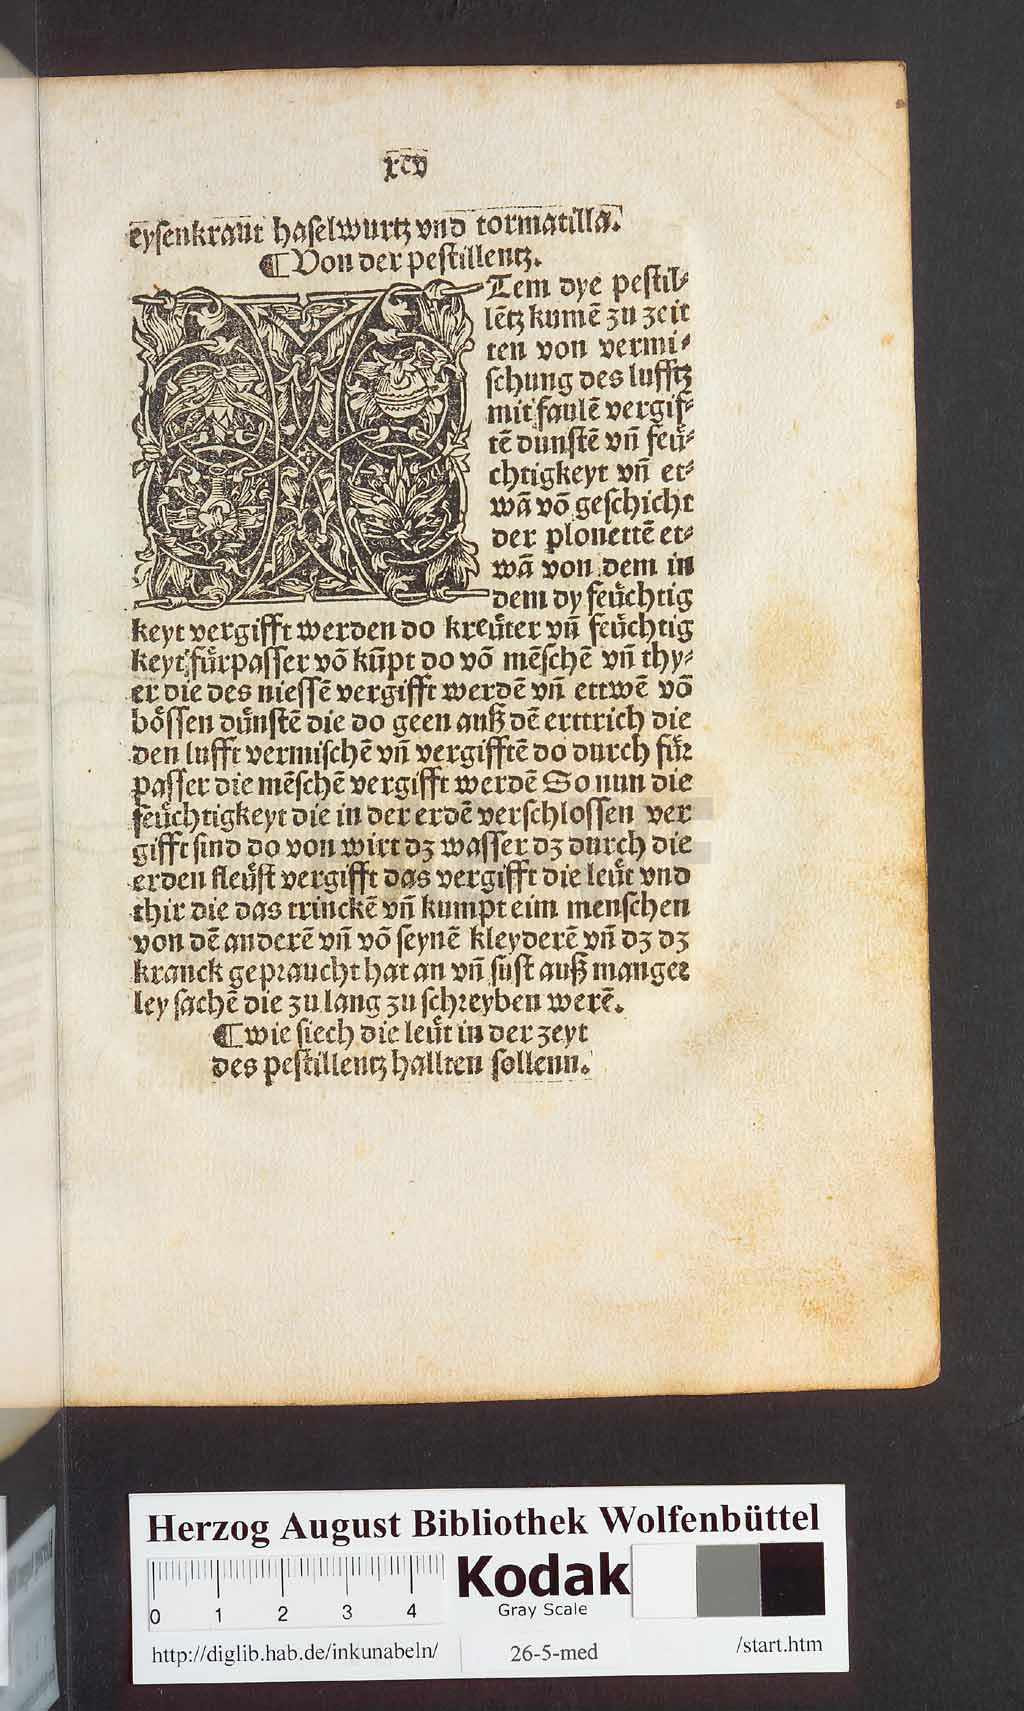 xcv
eysenkraut haselwurtz vnd tormatilla.
¶ Von der pestillentz.
ITem dye pestil⸗
lētz kumē zu zeit
ten von vermi⸗
schung des lufftz
mit faulē vergif⸗
tē dunstē vñ feü⸗
chtigkeyt vñ et⸗
wā vō geschicht
der plonettē et⸗
wā von dem in
dem dy feüchtig
keyt vergifft werden do kreüter vñ feüchtig
keyt fürpasser vō kūpt do vō mēschē vñ thy⸗
er die des niessē vergifft werdē vñ ettwē vō
bössen dünstē die do geen auß dē erttrich die
den lufft vermischē vñ vergifftē do durch für
passer die mēschē vergifft werdē So nun die
feüchtigkeyt die in der erdē verschlossen ver
gifft sind do von wirt dz wasser dz durch die
erden fleüst vergifft das vergifft die leüt vnd
thir die das trinckē vñ kumpt eim menschen
von dē anderē vñ vō seynē kleyderē vñ dz dz
kranck gepraucht hat an vñ sust auß manger
ley sachē die zu lang zu schreyben werē.
¶ wie siech die leüt in der zeyt
des pestillentz hallten sollenn.
Herzog August Bibliothek Wolfenbüttel
0 1 2 3 4
Kodak
Gray Scale
http://diglib.hab.de/inkunabeln/ 26-5-med /start.htm